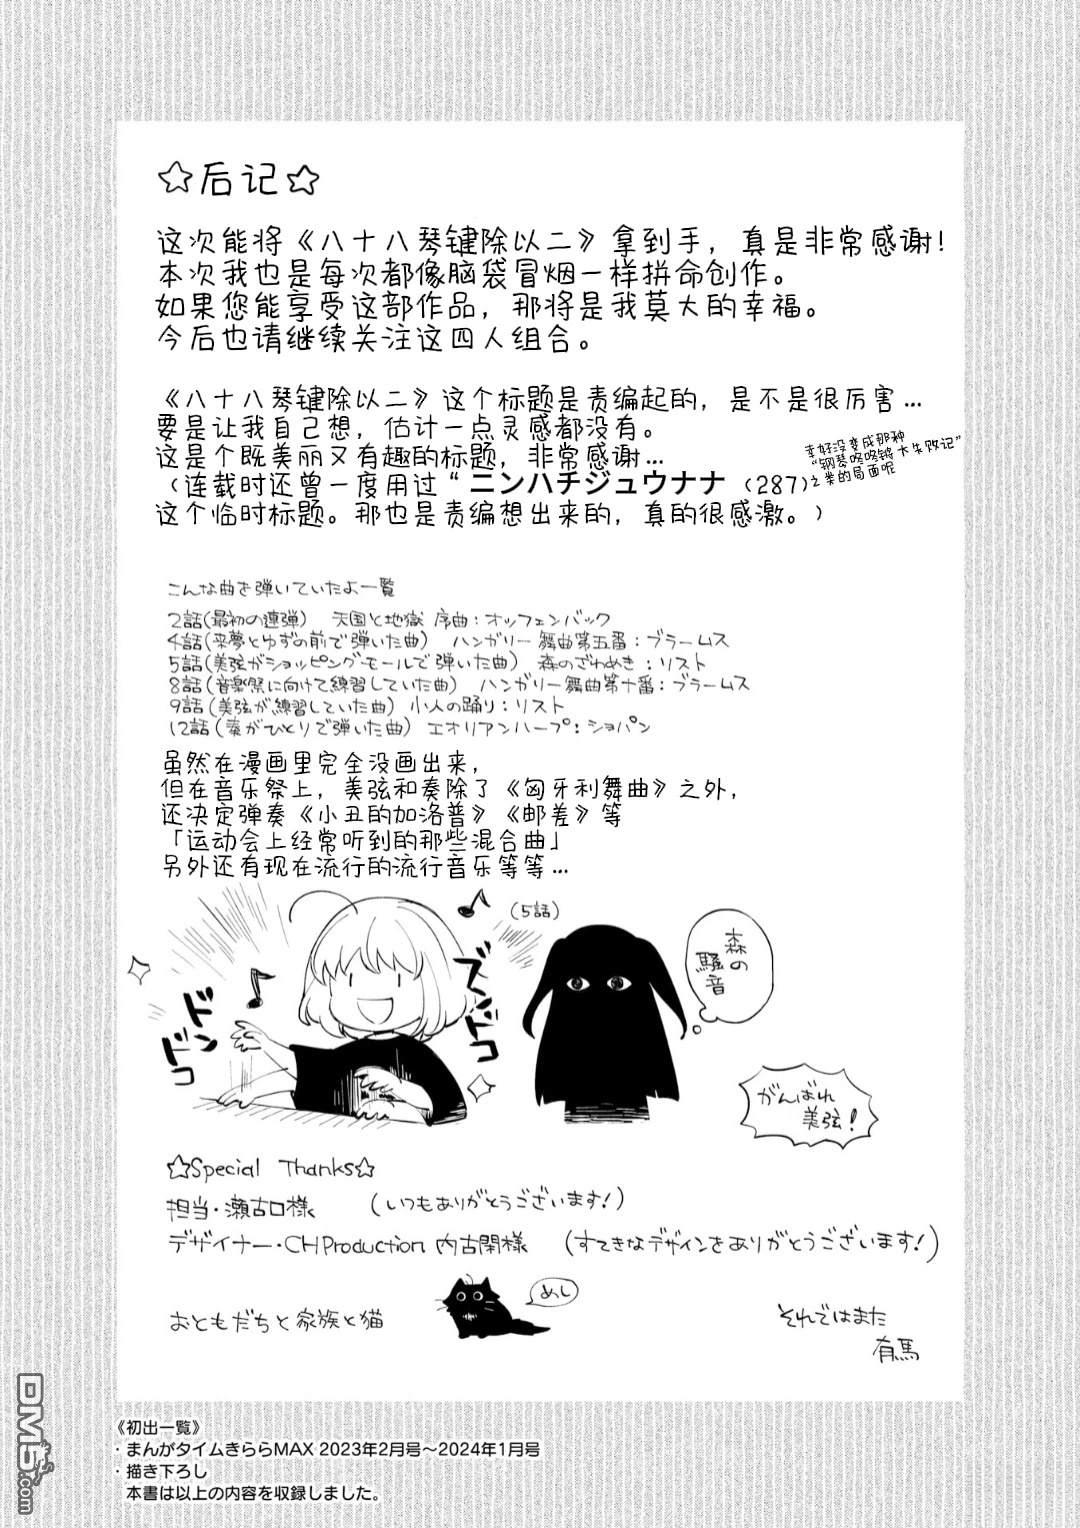 ☆后记☆
这次能将《八十八琴键除以二》拿到手，真是非常感谢！
本次我也是每次都像脑袋冒烟一样拼命创作。
如果您能享受这部作品，那将是我莫大的幸福。
今后也请继续关注这四人组合。
《八十八琴键除以二》这个标题是责编起的，是不是很厉害…
要是让我自己想，估计一点灵感都没有。
这是个既美丽又有趣的标题，非常感谢…
（连载时还曾一度用过“ニンハチジュウナナ（287）
幸好没变成那种
“钢琴咚咚锵大失败记”
之类的局面呢
这个临时标题。那也是责编想出来的，真的很感激。）
こんな曲を弾いていたよ一覧
2話(最初の連弾) 天国と地獄 序曲：オッフェンバック
4話(来夢とゆずの前で弾いた曲) ハンガリー舞曲第五番：ブラームス
5話(美弦がショッピングモールで弾いた曲) 森のざわめき：リスト
8話(音楽祭に向けて練習していた曲) ハンガリー舞曲第十番：ブラームス
9話(美弦が練習していた曲) 小人の踊り：リスト
12話(奏がひとりで弾いた曲) エオリアンハープ：ショパン
虽然在漫画里完全没画出来，
但在音乐祭上，美弦和奏除了《匈牙利舞曲》之外，
还决定弹奏《小丑的加洛普》《邮差》等
「运动会上经常听到的那些混合曲」
另外还有现在流行的流行音乐等等…
ドン
ドコ
ズンドコ
(5話)
森の
騒音
がんばれ
美弦！
☆Special Thanks☆
担当・瀬古口様 (いつもありがとうございます！)
デザイナー・CHProduction 内古閑様 (すてきなデザインをありがとうございます！)
おともだちと家族と猫
めし
それではまた
有馬
《初出一覧》
・まんがタイムきららMAX 2023年2月号～2024年1月号
・描き下ろし
本書は以上の内容を収録しました。
DM5.com